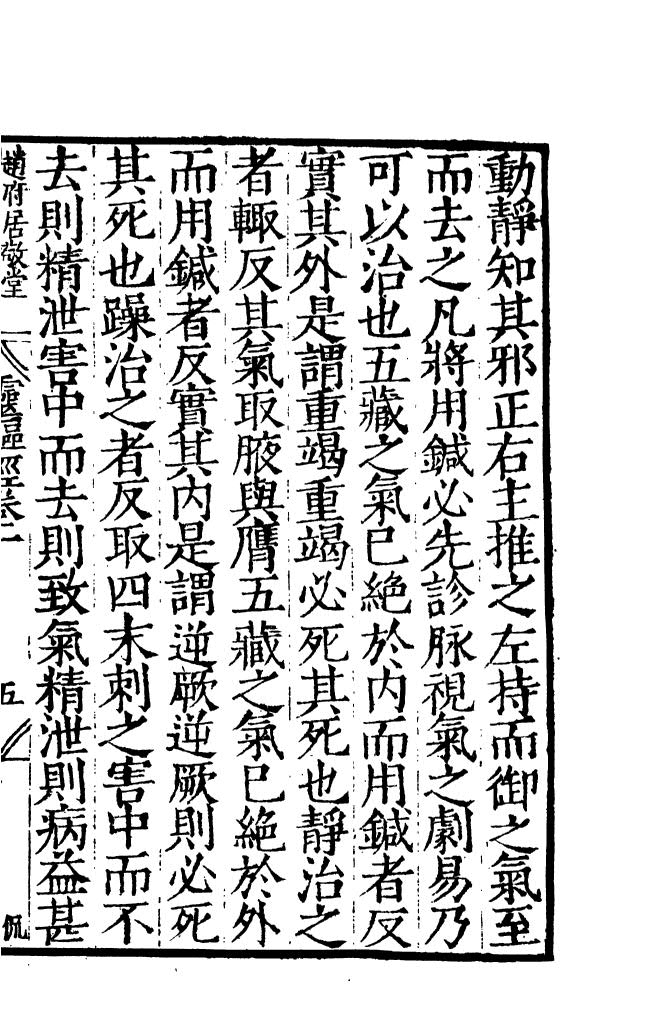 動靜知其邪正右主推之左持而御之氣至
而去之凡將用鍼必先診脉視氣之劇易乃
可以治也五藏之氣已絕於内而用鍼者反
實其外是謂重竭重竭必死其死也靜治之
者輙反其氣取腋與膺五藏之氣已絕於外
而用鍼者反實其内是謂逆厥逆厥則必死
其死也躁治之者反取四末刺之害中而不
去則精泄害中而去則致氣精泄則病益甚
趙府居敬堂 靈樞經卷一 五 侃